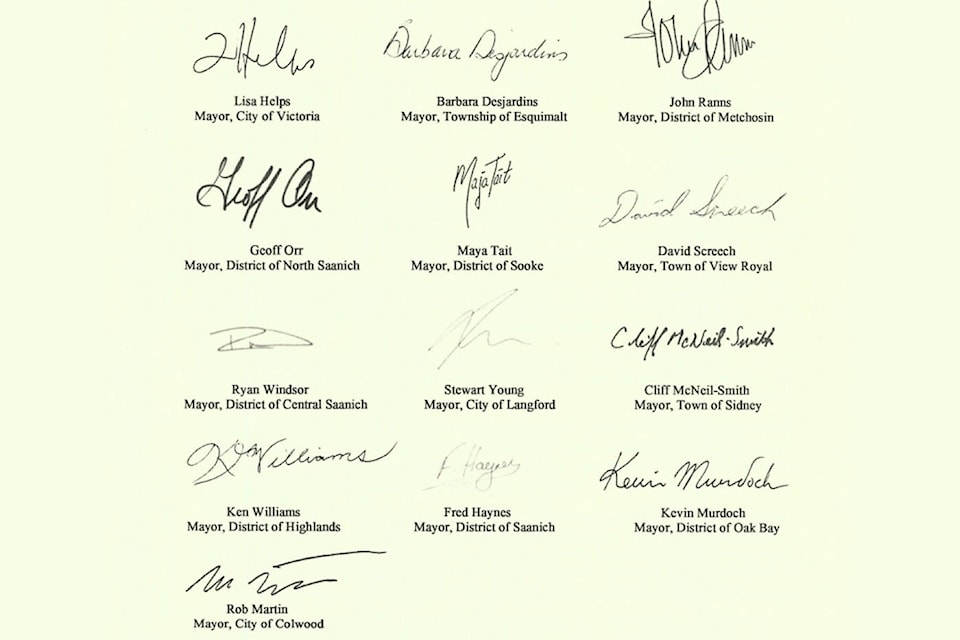 LHelps
Barbara Desjardins
John Ranns
Lisa Helps
Mayor, City of Victoria
Barbara Desjardins
Mayor, Township of Esquimalt
John Ranns
Mayor, District of Metchosin
Geoff Orr
Maja Tait
David Screech
Geoff Orr
Mayor, District of North Saanich
Maya Tait
Mayor, District of Sooke
David Screech
Mayor, Town of View Royal
Cliff McNeil-Smith
Ryan Windsor
Mayor, District of Central Saanich
Stewart Young
Mayor, City of Langford
Cliff McNeil-Smith
Mayor, Town of Sidney
Williams
F Haynes
Kevin Murdoch
Ken Williams
Mayor, District of Highlands
Fred Haynes
Mayor, District of Saanich
Kevin Murdoch
Mayor, District of Oak Bay
Rob Martin
Mayor, City of Colwood